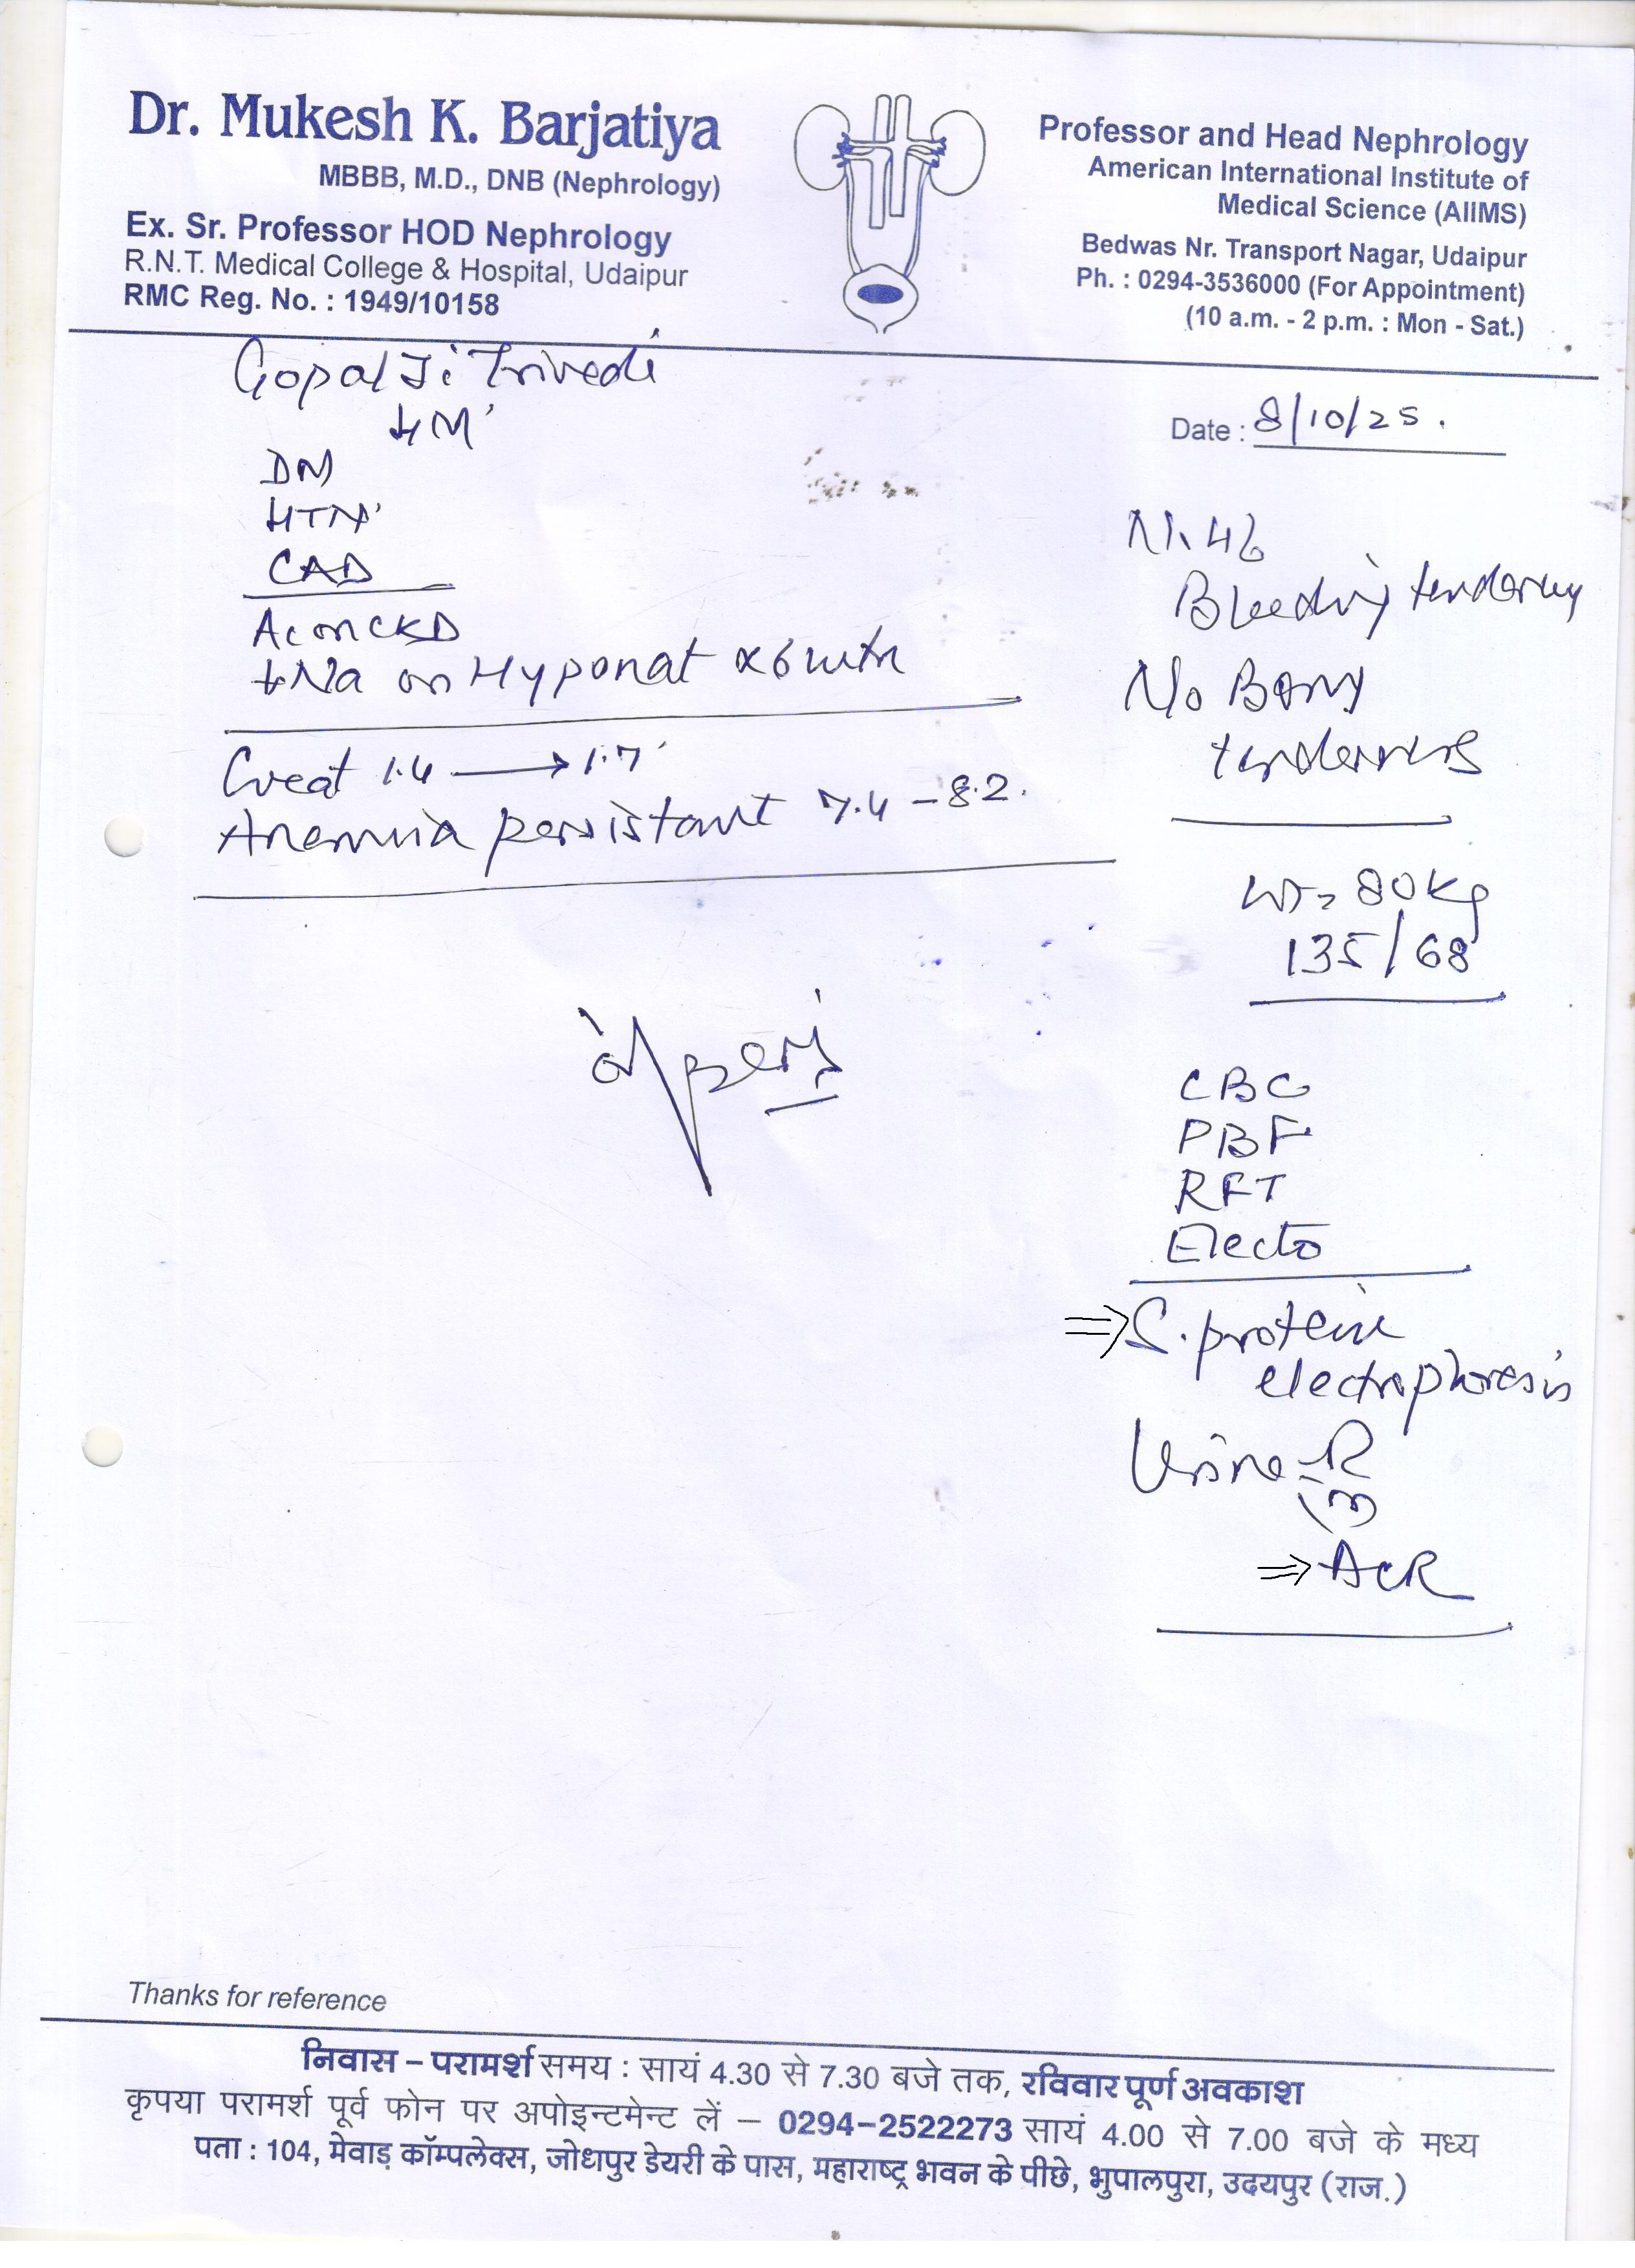 Dr. Mukesh K. Barjatiya
MBBB, M.D., DNB (Nephrology)
Ex. Sr. Professor HOD Nephrology
R.N.T. Medical College & Hospital, Udaipur
RMC Reg. No. : 1949/10158
Professor and Head Nephrology
American International Institute of
Medical Science (AIIMS)
Bedwas Nr. Transport Nagar, Udaipur
Ph. : 0294-3536000 (For Appointment)
(10 a.m. - 2 p.m. : Mon - Sat.)
Gopal Ji Trivedi
Date : 8/10/25.
DM
HTN
CAD
on CKD
↓Na on Hyponat x6
Creat 1.4 → 1.7
Anemia persistant 7.4 - 8.2.
Bleeding tendency
No Bony
tenderness
80 Kg
135/68
CBC
PBF
RFT
Electo
⇒ S. protein
electrophoresis
Urine - R
⇒ ACR
Thanks for reference
निवास – परामर्श समय : सायं 4.30 से 7.30 बजे तक, रविवार पूर्ण अवकाश
कृपया परामर्श पूर्व फोन पर अपोइन्टमेन्ट लें – 0294–2522273 सायं 4.00 से 7.00 बजे के मध्य
पता : 104, मेवाड़ कॉम्पलेक्स, जोधपुर डेयरी के पास, महाराष्ट्र भवन के पीछे, भुपालपुरा, उदयपुर (राज.)